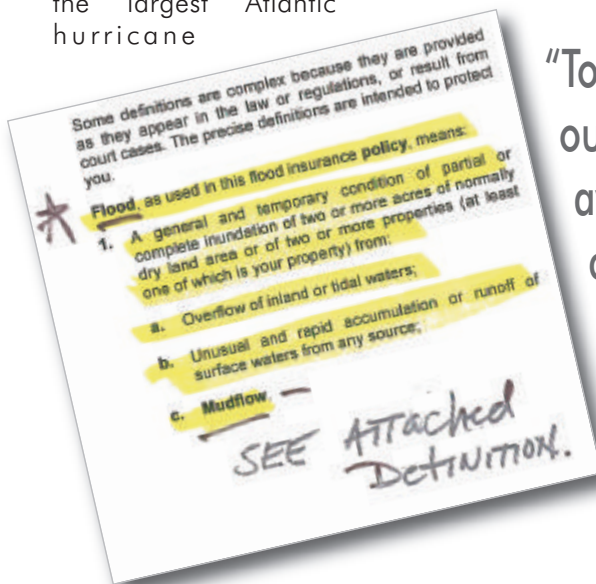 the largest Atlantic
hurricane
Some definitions are complex because they are provided
as they appear in the law or regulations, or result from
court cases. The precise definitions are intended to protect
you.
Flood, as used in this flood insurance policy, means:
1. A general and temporary condition of partial or
complete inundation of two or more acres of normally
dry land area or of two or more properties (at least
one of which is your property) from:
a. Overflow of inland or tidal waters;
b. Unusual and rapid accumulation or runoff of
surface waters from any source;
c. Mudflow.
SEE ATTached
DefiNiTiON.
"To
ou